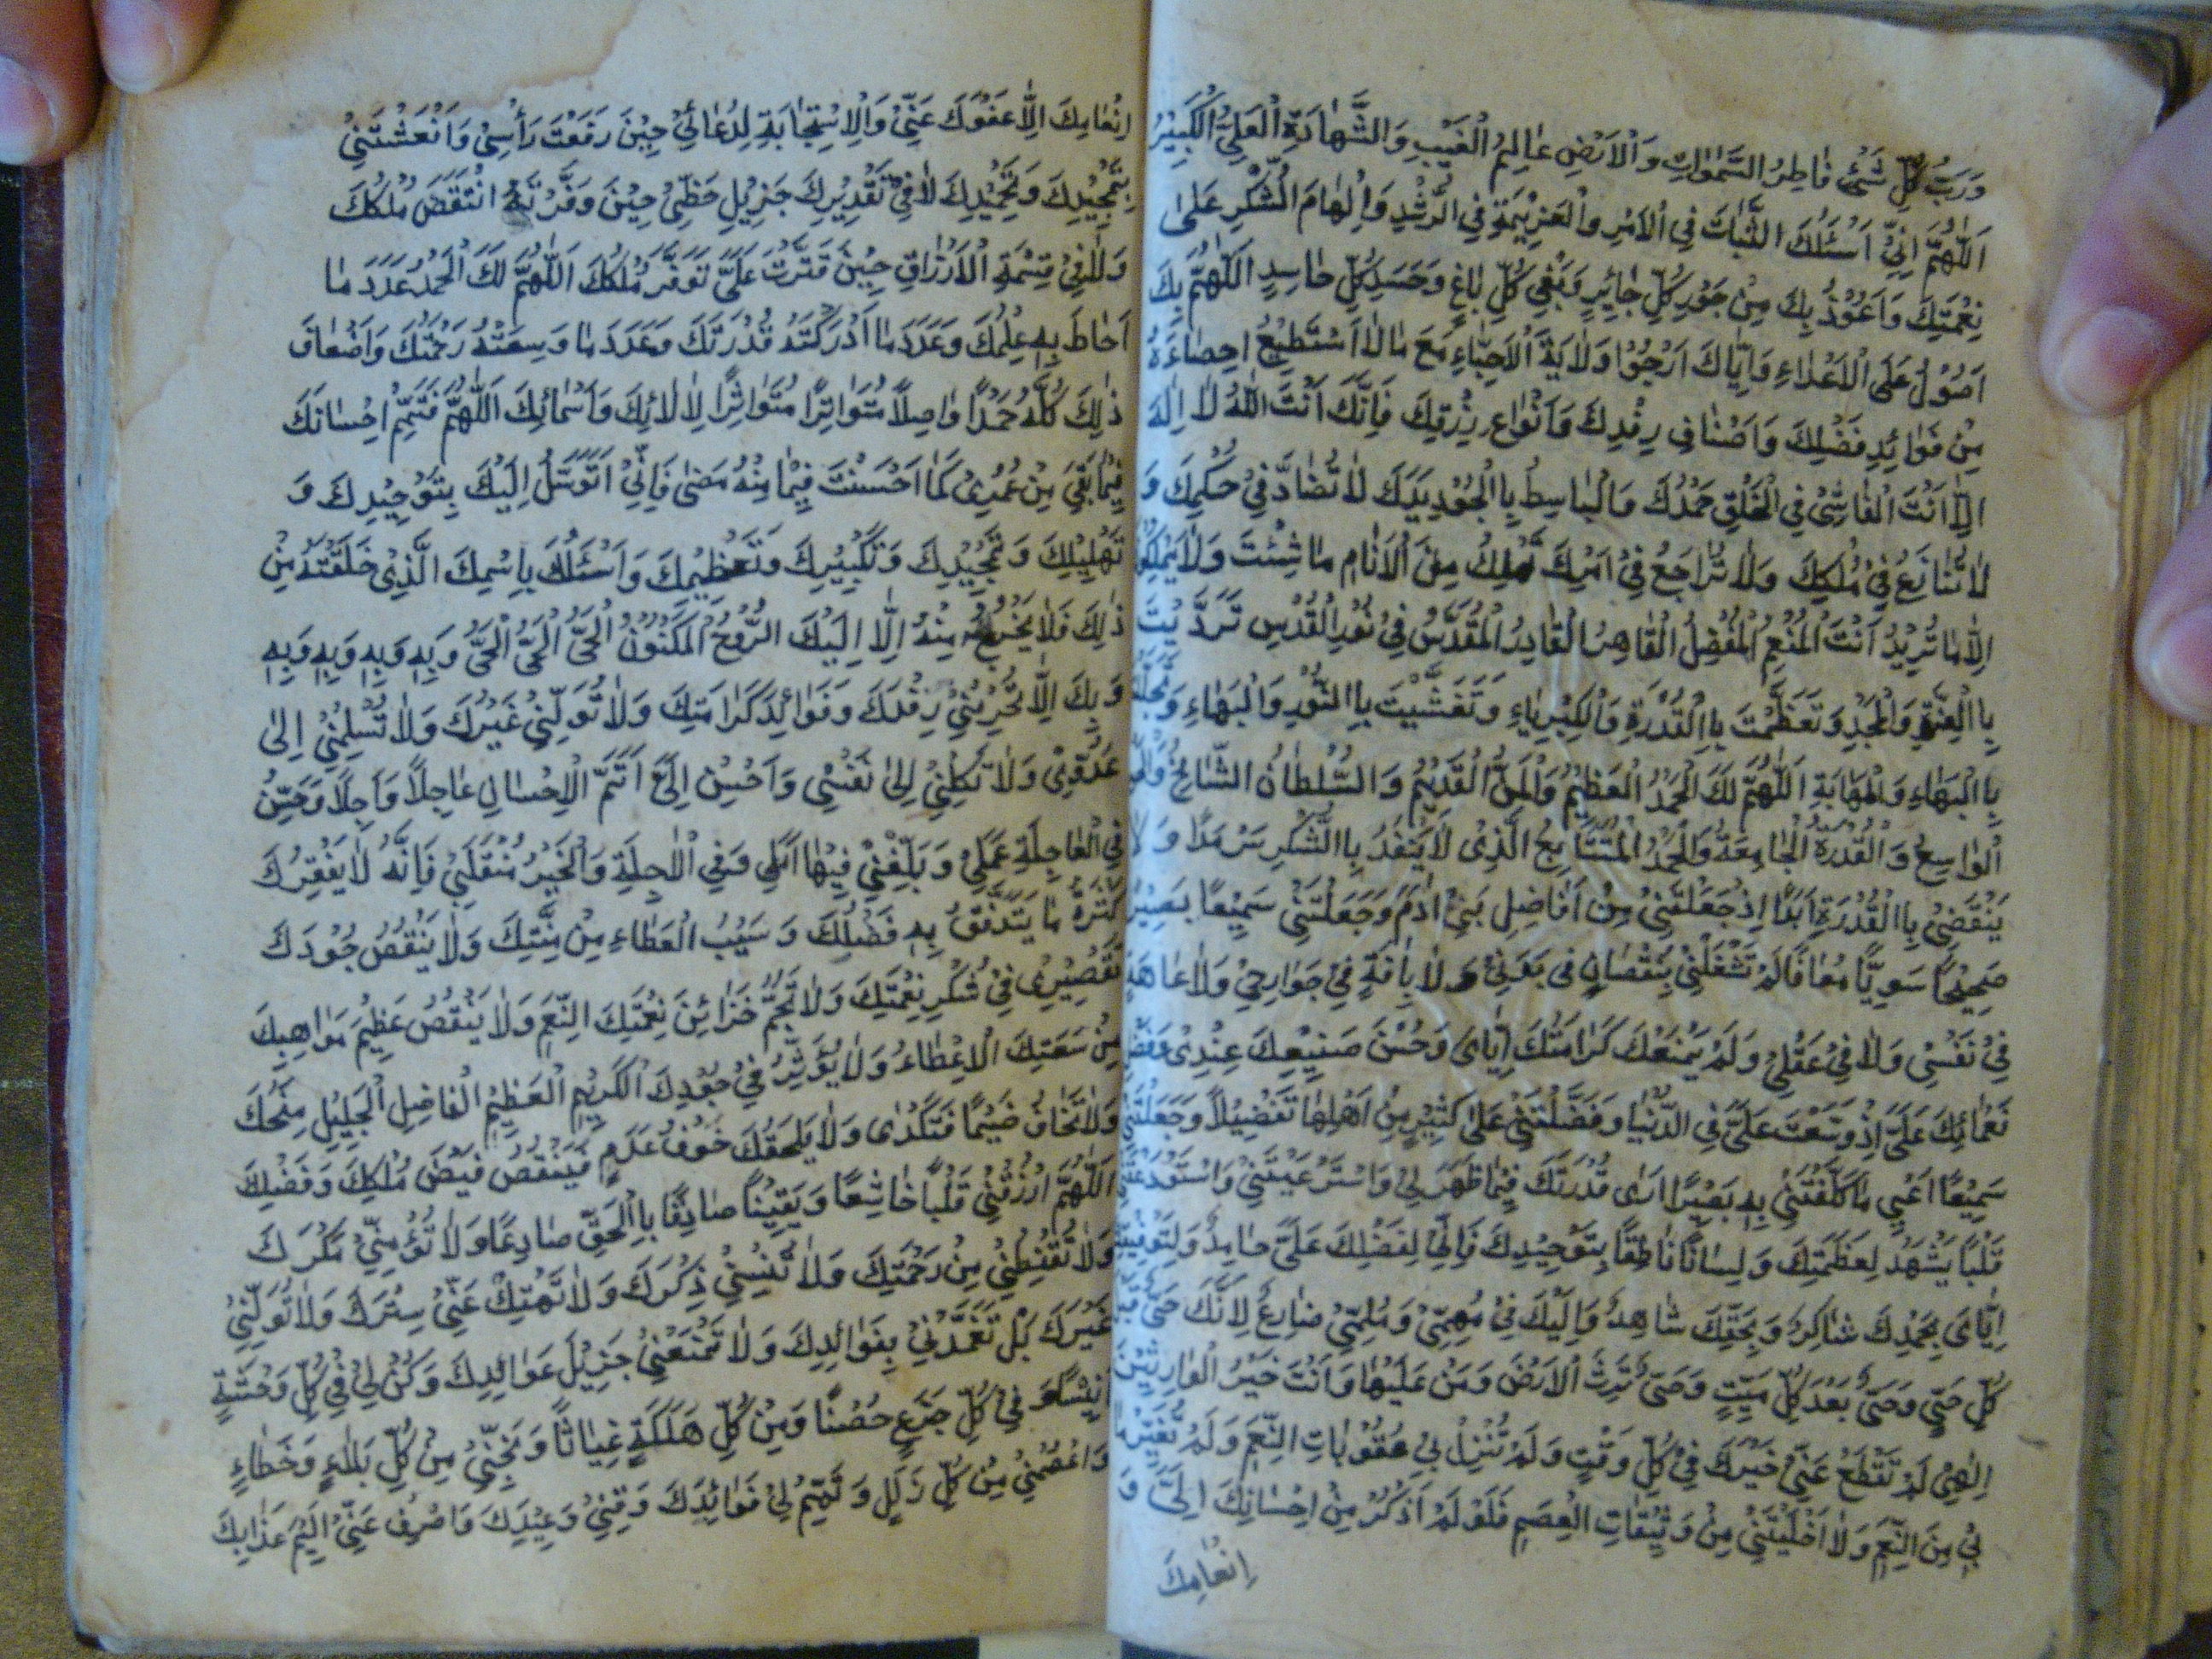 وَرَبُّ كُلِّ شَيْءٍ فَاطِرُ السَّمٰوَاتِ وَالْاَرْضِ عَالِمُ الْغَيْبِ وَالشَّهَادَةِ الْعَلِيُّ الْكَبِيْرُ
اَللّٰهُمَّ اِنِّيْ اَسْئَلُكَ الثَّبَاتَ فِي الْاَمْرِ وَالْعَزِيْمَةِ فِي الرُّشْدِ وَاِلْهَامَ الشُّكْرِ عَلٰى
نِعْمَتِكَ وَاَعُوْذُ بِكَ مِنْ جَوْرِ كُلِّ جَائِرٍ وَبَغْيِ كُلِّ بَاغٍ وَحَسَدِ كُلِّ حَاسِدٍ اَللّٰهُمَّ بِكَ
اَصُوْلُ عَلَى الْاَعْدَاءِ وَاِيَّاكَ اَرْجُوْا وَلَايَةَ الْاَحِبَّاءِ مَعَ مَا لَا اَسْتَطِيْعُ اِحْصَاءَهُ
مِنْ فَوَائِدِ فَضْلِكَ وَاَصْنَافِ رِفْدِكَ وَاَنْوَاعِ رِزْقِكَ فَاِنَّكَ اَنْتَ اللّٰهُ لَا اِلٰهَ
اِلَّا اَنْتَ الْفَاشِيْ فِي الْخَلْقِ حَمْدُكَ وَالْبَاسِطُ بِاالْجُوْدِ يَدَكَ لَا تُضَادُّ فِيْ حُكْمِكَ وَ
لَا تُنَازَعُ فِيْ مُلْكِكَ وَلَا تُرَاجَعُ فِيْ اَمْرِكَ تَمْلِكُ مِنَ الْاَنَامِ مَا شِئْتَ وَلَا يَمْلِكُوْنَ
اِلَّا مَا تُرِيْدُ اَنْتَ الْمُنْعِمُ الْمُفْضِلُ الْقَاهِرُ الْقَادِرُ الْمُقَدَّسُ فِيْ نُوْرِ الْقُدْسِ تَرَدَّيْتَ
بِاالْعِزَّةِ وَالْمَجْدِ وَتَعَظَّمْتَ بِاالْقُدْرَةِ وَالْكِبْرِيَاءِ وَتَغَشَّيْتَ بِاالنُّوْرِ وَالْبَهَاءِ وَتَجَلَّلْتَ
بِاالْبَهَاءِ وَالْمَهَابَةِ اَللّٰهُمَّ لَكَ الْحَمْدُ الْعَظِيْمُ وَالْمَنُّ الْقَدِيْمُ وَالسُّلْطَانُ الشَّامِخُ
اَلْوَاسِعُ وَالْقُدْرَةُ الْجَامِعَةُ وَالْحَمْدُ الْمُتَتَابِعُ الَّذِيْ لَا يَنْفَدُ بِاالشُّكْرِ سَرْمَدًا وَلَا
يَنْقَضِيْ بِاالْقُدْرَةِ اَبَدًا اِذْ جَعَلْتَنِيْ مِنْ اَفَاضِلِ بَنِيْ اٰدَمَ وَجَعَلْتَنِيْ سَمِيْعًا بَصِيْرًا
صَحِيْحًا سَوِيًّا مُعَافًا لَمْ تَشْغَلْنِيْ بِنُقْصَانٍ فِيْ بَدَنِيْ وَلَا بِاٰفَةٍ فِيْ جَوَارِحِيْ وَلَا عَاهَةٍ
فِيْ نَفْسِيْ وَلَا فِيْ عَقْلِيْ وَلَمْ يَمْنَعْكَ كَرَامَتُكَ اِيَّايَ وَحُسْنَ صَنِيْعِكَ عِنْدِيْ وَفَضْلَ
نَعْمَائِكَ عَلَيَّ اِذْ وَسَّعْتَ عَلَيَّ فِي الدُّنْيَا وَفَضَّلْتَنِيْ عَلٰى كَثِيْرٍ مِنْ اَهْلِهَا تَفْضِيْلًا وَجَعَلْتَنِيْ
سَمِيْعًا اَعِيْ مَا كَلَّفْتَنِيْ بِهٖ بَصِيْرًا اَرٰى قُدْرَتَكَ فِيْمَا ظَهَرَ لِيْ وَاسْتَرْعَيْتَنِيْ وَاسْتَوْدَعْتَنِيْ
قَلْبًا يَشْهَدُ لِعَظَمَتِكَ وَلِسَانًا نَاطِقًا بِتَوْحِيْدِكَ فَاِنِّيْ لِفَضْلِكَ عَلَيَّ حَامِدٌ وَلِتَوْفِيْقِكَ
اِيَّايَ بِحَمْدِكَ شَاكِرٌ وَبِحَقِّكَ شَاهِدٌ وَاِلَيْكَ فِيْ مُهِمِّيْ وَمُلِمِّيْ ضَارِعٌ لِاَنَّكَ حَيٌّ قَبْلَ
كُلِّ حَيٍّ وَحَيٌّ بَعْدَ كُلِّ مَيِّتٍ وَحَيٌّ تَرِثُ الْاَرْضَ وَمَنْ عَلَيْهَا وَاَنْتَ خَيْرُ الْوَارِثِيْنَ
اِلٰهِيْ لَمْ تَقْطَعْ عَنِّيْ خَيْرَكَ فِيْ كُلِّ وَقْتٍ وَلَمْ تُنْزِلْ بِيْ عُقُوْبَاتِ النِّقَمِ وَلَمْ تُغَيِّرْ مَا
بِيْ مِنَ النِّعَمِ وَلَا اَخْلَيْتَنِيْ مِنْ وَثِيْقَاتِ الْعِصَمِ فَلَوْ لَمْ اَذْكُرْ مِنْ اِحْسَانِكَ اِلَيَّ وَ
اِنْعَامِكَ
اِنْعَامِكَ اِلَّا عَفْوَكَ عَنِّيْ وَالْاِسْتِجَابَةِ لِدُعَائِيْ حِيْنَ رَفَعْتَ رَأْسِيْ وَاَنْعَشْتَنِيْ
بِتَمْجِيْدِكَ وَتَحْمِيْدِكَ لَا فِيْ تَقْدِيْرِكَ جَزِيْلِ حَظِّيْ حِيْنَ وَفَّرْتَهُ انْتَقَصَ مُلْكُكَ
وَلَا فِيْ قِسْمَةِ الْاَرْزَاقِ حِيْنَ قَتَّرْتَ عَلَيَّ تَوَفَّرَ مُلْكُكَ اَللّٰهُمَّ لَكَ الْحَمْدُ عَدَدَ مَا
اَحَاطَ بِهٖ عِلْمُكَ وَعَدَدَ مَا اَدْرَكَتْهُ قُدْرَتُكَ وَعَدَدَ مَا وَسِعَتْهُ رَحْمَتُكَ وَاَضْعَافَ
ذٰلِكَ كُلِّهٖ حَمْدًا وَاصِلًا مُتَوَاتِرًا مُتَوَاثِرًا لِاٰلَائِكَ وَاَسْمَائِكَ اَللّٰهُمَّ فَتَمِّمْ اِحْسَانَكَ
فِيْمَا بَقِيَ مِنْ عُمُرِيْ كَمَا اَحْسَنْتَ فِيْمَا مِنْهُ مَضٰى فَاِنِّيْ اَتَوَسَّلُ اِلَيْكَ بِتَوْحِيْدِكَ وَ
تَهْلِيْلِكَ وَتَمْجِيْدِكَ وَتَكْبِيْرِكَ وَتَعْظِيْمِكَ وَاَسْئَلُكَ بِاِسْمِكَ الَّذِيْ خَلَقْتَهُ مِنْ
ذٰلِكَ فَلَا يَخْرُجُ مِنْهُ اِلَّا اِلَيْكَ الرُّوْحُ الْمَكْنُوْنُ الْحَيُّ الْحَيُّ الْحَيُّ وَبِهٖ وَبِهٖ وَبِهٖ وَبِهٖ
وَبِكَ اِلَّا تَحْرِمْنِيْ رِفْدَكَ وَفَوَائِدَ كَرَامَتِكَ وَلَا تُوَلِّنِيْ غَيْرَكَ وَلَا تُسْلِمْنِيْ اِلٰى
عَدُوِّيْ وَلَا تَكِلْنِيْ اِلٰى نَفْسِيْ وَاَحْسِنْ اِلَيَّ اَتَمَّ الْاِحْسَانِ عَاجِلًا وَاٰجِلًا وَحَسِّنْ
فِي الْعَاجِلَةِ عَمَلِيْ وَبَلِّغْنِيْ فِيْهَا اَمَلِيْ وَفِي الْاٰجِلَةِ وَالْخَيْرُ مُنْقَلَبِيْ فَاِنَّهُ لَا يَفْقِرُكَ
كَثْرَةُ مَا يَتَدَفَّقُ بِهٖ فَضْلُكَ وَسَيْبُ الْعَطَاءِ مِنْ مِنَّتِكَ وَلَا يَنْقُصُ جُوْدَكَ
تَقْصِيْرِيْ فِيْ شُكْرِ نِعْمَتِكَ وَلَا تَجُمُّ خَزَائِنَ نِعْمَتِكَ النِّعَمُ وَلَا يَنْقُصُ عَظِيْمَ مَوَاهِبِكَ
مِنْ سَعَتِكَ الْاِعْطَاءُ وَلَا يُؤَثِّرُ فِيْ جُوْدِكَ الْكَرِيْمِ الْعَظِيْمِ الْفَاضِلِ الْجَلِيْلِ مِنَحُكَ
وَلَا تَخَافُ ضَيْمًا فَتَكْدٰى وَلَا يَلْحَقُكَ خَوْفُ عَدَمٍ فَيَنْقُصُ فَيْضَ مُلْكِكَ وَفَضْلِكَ
اَللّٰهُمَّ ارْزُقْنِيْ قَلْبًا خَاشِعًا وَيَقِيْنًا صَادِقًا بِاالْحَقِّ صَادِعًا وَلَا تُؤْمِنِّيْ مَكْرَكَ
وَلَا تُقْنِطْنِيْ مِنْ رَحْمَتِكَ وَلَا تُنْسِنِيْ ذِكْرَكَ وَلَا تَهْتِكْ عَنِّيْ سِتْرَكَ وَلَا تُوَلِّنِيْ
غَيْرَكَ بَلْ تَغَمَّدْنِيْ بِفَوَائِدِكَ وَلَا تَمْنَعْنِيْ جَزِيْلَ عَوَائِدِكَ وَكُنْ لِيْ فِيْ كُلِّ وَحْشَةٍ
اَنِيْسًا وَفِيْ كُلِّ جَزَعٍ حِصْنًا وَمِنْ كُلِّ هَلَكَةٍ غِيَاثًا وَنَجِّنِيْ مِنْ كُلِّ بَلَاءٍ وَخَطَاءٍ
وَاعْصِمْنِيْ مِنْ كُلِّ زَلَلٍ وَتَمِّمْ لِيْ فَوَائِدَكَ وَقِنِيْ وَعِيْدَكَ وَاصْرِفْ عَنِّيْ اَلِيْمَ عَذَابِكَ